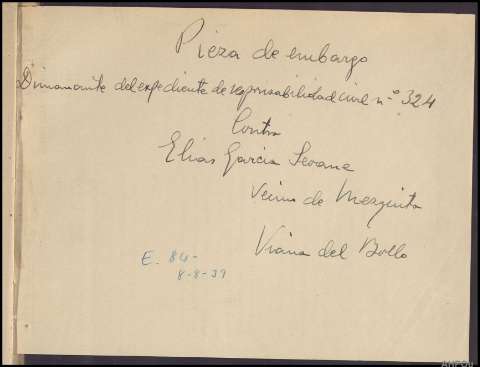 Pieza de embargo
Dimanante del expediente de responsabilidad civil n.º 324
Contra
Elias Garcia Seoane
Vecino de Mezquita
Viana del Bollo
E. 84-
8-8-39
AHPOU